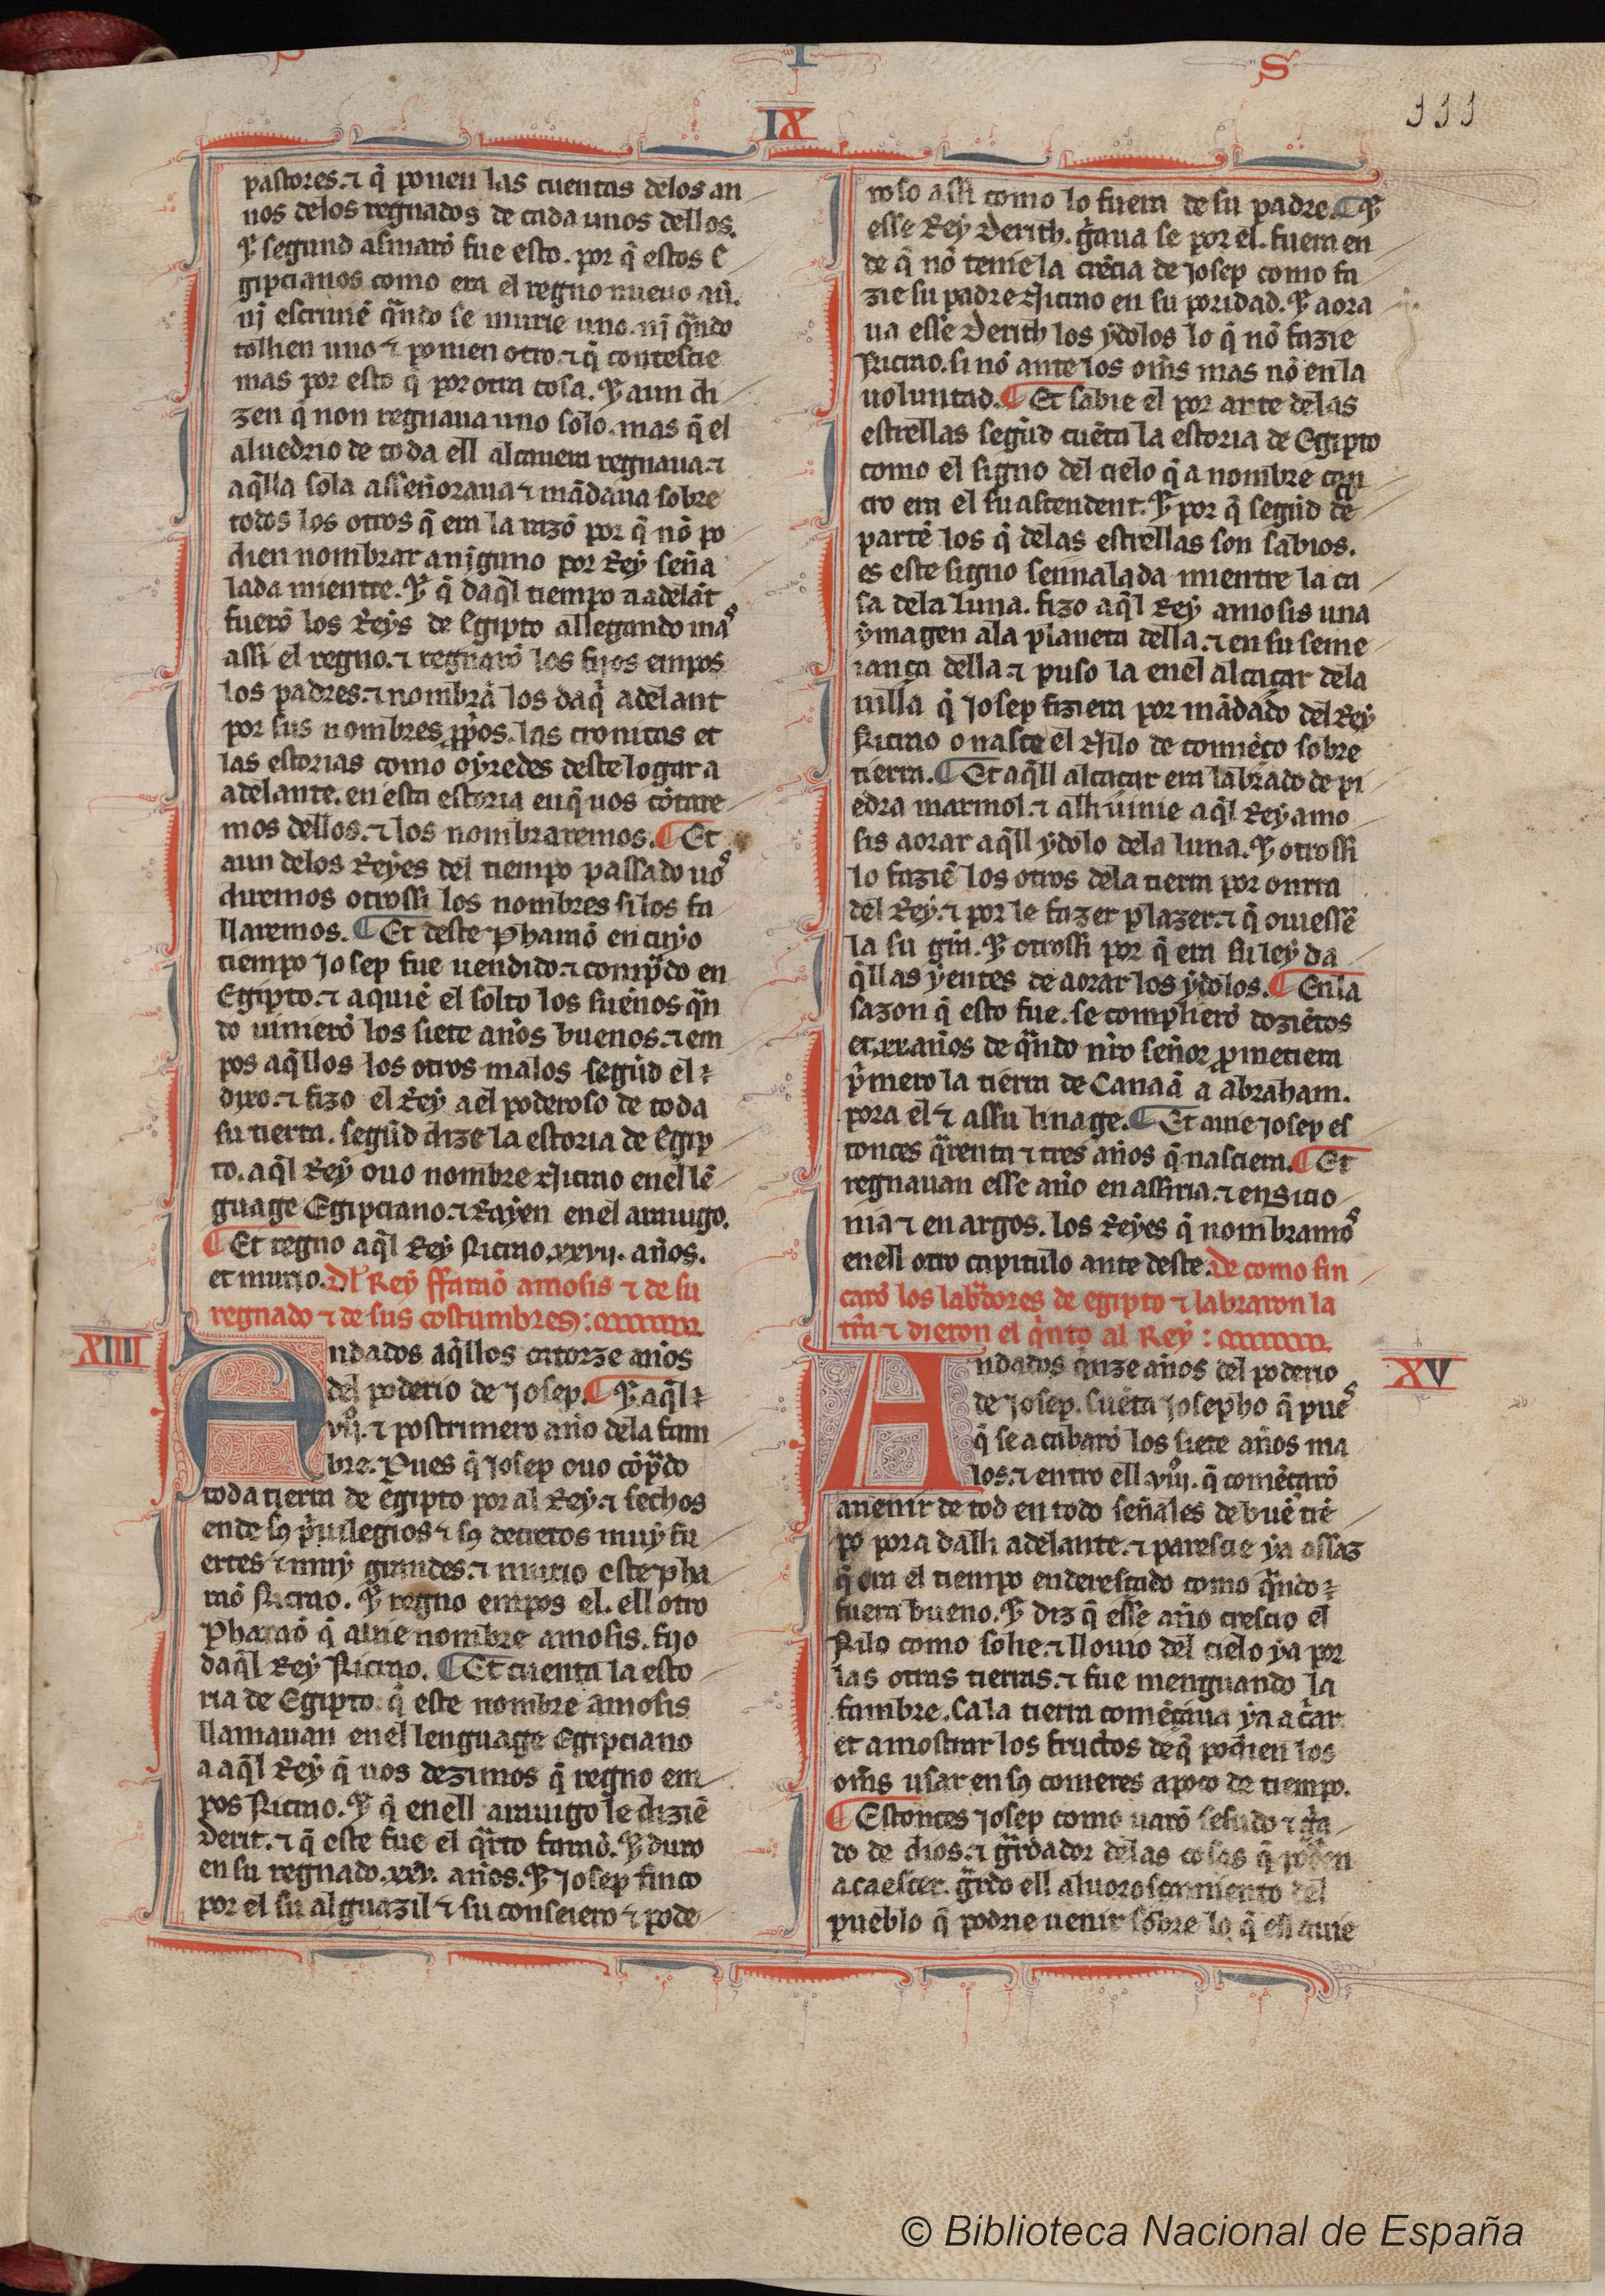 S I S
IX
111
pastores. ⁊ q̃ ponen las cuentas delos an
nos delos regnados de cada unos dellos.
⁊ segund asmarõ fue esto. por q̃ estos e
gipcianos como era el regno nueuo aũ.
nj escriuiẽ qñdo se murie uno. nj qñdo
tollien uno ⁊ ponien otro. ⁊ q̃ contescie
mas por esto q̃ por otra cosa. ⁊ aun di
zen q̃ non regnaua uno solo. mas q̃ el
aluedrio de toda ell alcauera regnaua. ⁊
aq̃lla sola asseñoraua ⁊ mãdaua sobre
todos los otros q̃ era la razõ por q̃ nõ po
dien nombrar a njguno por Rey seña
lada mientre. ⁊ q̃ daq̃l tiempo a adelãt
fuerõ los Reys de Egipto allegando mas
assi el regno. ⁊ regnarõ los fijos empos
los padres. ⁊ nombrã los daq̃ adelant
por sus nombres ꝓp̃os. las cronicas et
las estorias como oyredes deste logar a
adelante. en esta estoria en q̃ uos cõtare
mos dellos. ⁊ los nombraremos. ¶ Et
aun delos Reyes del tiempo passado uos
diremos otrossi los nombres si los fa
llaremos. ¶ Et deste Pharaõ en cuyo
tiempo Josep fue uendido ⁊ comp̃do en
Egipto. ⁊ a quiẽ el solto los sueños qñ
do uinierõ los siete años buenos. ⁊ em
pos aq̃llos los otros malos segũd el ⁊
dixo. ⁊ fizo el Rey a el poderoso de toda
su tierra. segũd dize la estoria de Egip
to. aq̃l Rey ouo nombre Nicrao enel lẽ
guage Egipciano. ⁊ Rayen enel arauigo.
¶ Et regno aq̃l Rey Nicrao .xxvij. años.
et murio. Dl̃ Rey ffaraõ amosis ⁊ de su
regnado ⁊ de sus costumbres:
XIIII
Andados aq̃llos catorze años
del poderio de Josep. ¶ ⁊ aq̃l ⁊
vijº. ⁊ postrimero año dela fam
bre. Pues q̃ Josep ouo cõp̃do
toda tierra de egipto por al Rey. ⁊ fechos
ende sꝯ p̃uilegios ⁊ sꝯ decretos muy fu
ertes ⁊ muy grandes. ⁊ murio este pha
raõ Nicrao. ⁊ regno empos el. ell otro
Pharaõ q̃ auie nombre amosis. fijo
daq̃l Rey Nicrao. ¶ Et cuenta la esto
ria de Egipto. q̃ este nombre amosis
llamauan enel lenguage Egipciano
a aq̃l Rey q̃ uos dezimos q̃ regno em
pos Nicrao. ⁊ q̃ enell arauigo le diziẽ
Derit. ⁊ q̃ este fue el q̃rto faraõ. ⁊ duro
en su regnado .xxv. años. ⁊ Josep finco
por el su alguazil ⁊ su conseiero ⁊ pode
roso assi como lo fuera de su padre. ¶ ⁊
esse Rey Derith. g̃aua se por el. fuera en
de q̃ nõ tenie la creẽcia de Josep como fa
zie su padre Nicrao en su poridad. ⁊ aora
ua esse Derith los ydolos lo q̃ nõ fazie
Nicrao. si nõ ante los om̃s mas nõ en la
uoluntad. ¶ Et sabie el por arte delas
estrellas segũd cuẽta la estoria de Egipto
como el signo del cielo q̃ a nombre can
cro era el su ascendent. ⁊ por q̃ segũd de
partẽ los q̃ delas estrellas son sabios.
es este signo sennalada mientre la ca
sa dela luna. fizo aq̃l Rey amosis una
ymagen ala planeta della. ⁊ en su seme
iança della. ⁊ puso la enel alcaçar dela
uilla q̃ Josep fiziera por mãdado del Rey
Nicrao o nasce el Nilo de comiẽço sobre
tierra. ¶ Et aq̃ll alcaçar era labrado de pi
edra marmol. ⁊ alli uinie aq̃l Rey amo
sis aorar aq̃ll ydolo dela luna. ⁊ otrossi
lo faziẽ los otros dela tierra por onrra
del Rey. ⁊ por le fazer plazer. ⁊ q̃ ouiessẽ
la su grã. ⁊ otrossi por q̃ era su ley da
q̃llas yentes de aorar los ydolos. ¶ En la
sazon q̃ esto fue. se complierõ doziẽtos
et .xx. años de qñdo nr̃o señor ꝓmetiera
p̃mero la tierra de Canaã a abraham.
pora el ⁊ assu linage. ¶ Et auie Josep es
tonces q̃renta ⁊ tres años q̃ nasciera. ¶ Et
regnauan esse año en assiria. ⁊ en Sicio
nia ⁊ en argos. los Reyes q̃ nombramos
enell otro capitulo ante deste. De como fin
carõ los lab̃dores de egipto ⁊ labraron la
tr̃ra ⁊ dieron el q̃nto al Rey:
XV
Andados q̃nze años del poderio
de Josep. Cuẽta Josepho q̃ pues
q̃ se acabarõ los siete años ma
los. ⁊ entro ell .viijº. q̃ comẽçarõ
a uenir de tod en todo señales de buẽ tiẽ
po pora dalli adelante. ⁊ parescie ya assaz
q̃ era el tiempo enderesçado como qñdo ⁊
fuera bueno. ⁊ diz q̃ esse año crescio el
Nilo como solie. ⁊ llouio del cielo ya por
las otras tierras. ⁊ fue menguando la
fambre. Ca la tierra comẽçaua ya a c̃ar
et a mostrar los fructos de q̃ podien los
om̃s usar en sꝯ comeres a poco de tiempo.
¶ Estonces Josep como uarõ sesudo ⁊ g̃a
do de dios. ⁊ g̃rdador delas cosas q̃ podien
acaescer. g̃rdo ell aluoroscamiento del
pueblo q̃ podrie uenir sobre lo q̃ ell auie
© Biblioteca Nacional de España